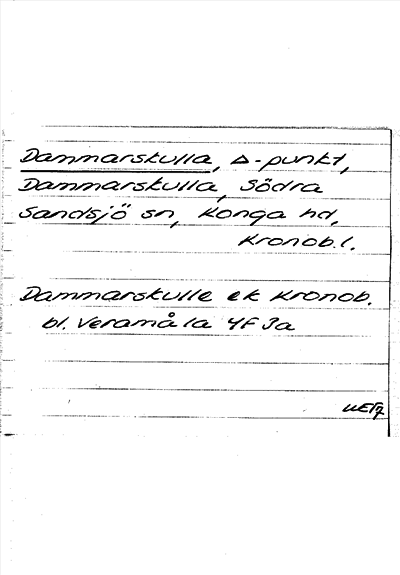 Dammarskulla, Δ-punkt,
Dammarskulla, Södra
Sandsjö sn, Konga hd,
Kronob. l.
Dammarskulle ek Kronob.
bl. Veramåla 4F 3a